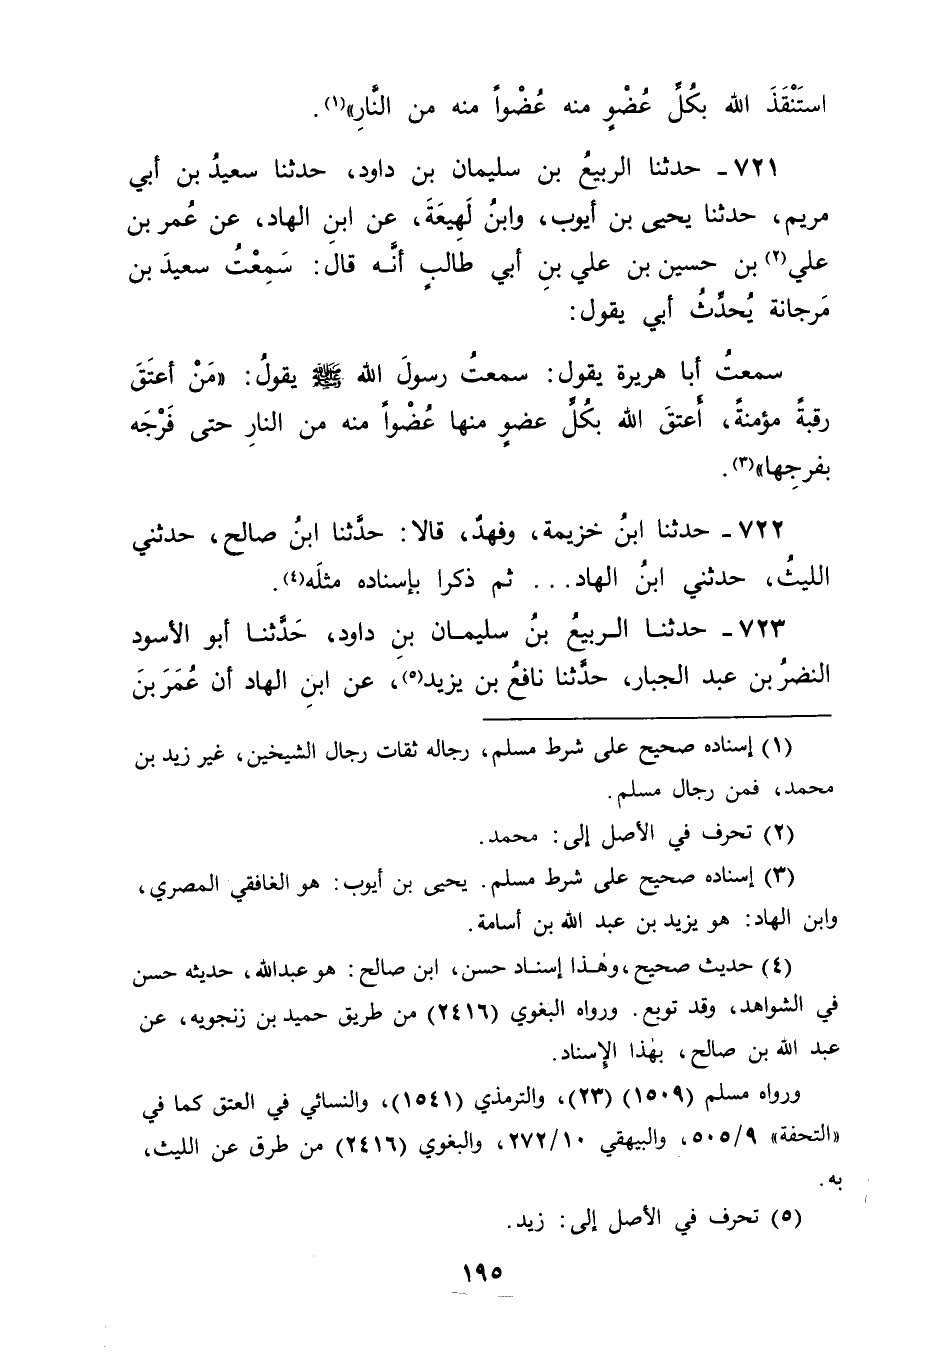 استَنْقَذَ الله بكُلِّ عُضْوٍ منه عُضْواً منه من النَّارِ»(١).
٧٢١ ـ حدثنا الربيعُ بن سليمان بن داود، حدثنا سعيدُ بن أبي
مريم، حدثنا يحيى بن أيوب، وابنُ لَهِيعَةَ، عن ابنِ الهاد، عن عُمر بن
علي(٢) بن حسين بن علي بنِ أبي طالبٍ أنَّه قال: سَمِعْتُ سعيدَ بن
مَرجانة يُحدِّثُ أبي يقول:
سمعتُ أبا هريرة يقول: سمعتُ رسولَ الله ﷺ يقولُ: «مَنْ أعتَقَ
رقبةً مؤمنةً، أَعتقَ الله بكُلِّ عضوٍ منها عُضْواً منه من النارِ حتى فَرْجَه
بفرجِها»(٣).
٧٢٢ ـ حدثنا ابنُ خزيمة، وفهدٌ، قالا: حدَّثنا ابنُ صالح، حدثني
الليثُ، حدثني ابنُ الهاد... ثم ذكرا بإسناده مثلَه(٤).
٧٢٣ ـ حدثنا الربيعُ بنُ سليمان بنِ داود، حَدَّثنا أبو الأسود
النضرُ بن عبد الجبار، حدَّثنا نافعُ بن يزيد(٥)، عن ابنِ الهاد أن عُمَرَ بنَ
(١) إسناده صحيح على شرط مسلم، رجاله ثقات رجال الشيخين، غير زيد بن
محمد، فمن رجال مسلم.
(٢) تحرف في الأصل إلى: محمد.
(٣) إسناده صحيح على شرط مسلم. يحيى بن أيوب: هو الغافقي المصري،
وابن الهاد: هو يزيد بن عبد الله بن أسامة.
(٤) حديث صحيح، وهٰذا إسناد حسن، ابن صالح: هو عبدالله، حديثه حسن
في الشواهد، وقد توبع. ورواه البغوي (٢٤١٦) من طريق حميد بن زنجويه، عن
عبد الله بن صالح، بهٰذا الإسناد.
ورواه مسلم (١٥٠٩) (٢٣)، والترمذي (١٥٤١)، والنسائي في العتق كما في
«التحفة» ٥٠٥/٩، والبيهقي ٢٧٢/١٠، والبغوي (٢٤١٦) من طرق عن الليث،
به.
(٥) تحرف في الأصل إلى: زيد.
١٩٥